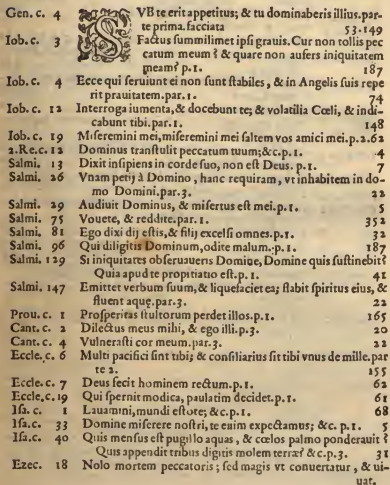 Gen. c. 4 SVB te erit appetitus; & tu dominaberis illius. par-
te prima. facciata 53. 149
Iob. c. 3 Factus sum milimet ipsi grauis. Cur non tollis pec
catum meum? & quare non aufers iniquitatem
meam? p. 1. 187
Iob. c. 4 Ecce qui seruiunt ei non sunt stabiles, & in Angelis suis repe
rit prauitatem. par. 1. 74
Iob. c. 12 Interroga iumenta, & docebunt te; & volatilia Cœli, & indi-
cabunt tibi. par. 1. 148
Iob. c. 19 Miseremini mei, miseremini mei saltem vos amici mei. p. 2. 62
2. Re. c. 12 Dominus transtulit peccatum tuum; &c. p. 1. 4
Salmi. 13 Dixit insipiens in corde suo, non est Deus. p. 1. 7
Salmi. 26 Vnam petij à Domino, hanc requiram, vt inhabitem in do-
mo Domini. par. 3. 22
Salmi. 29 Audiuit Dominus, & misertus est mei. p. 1. 5
Salmi. 75 Vouete, & reddite. par. 1. 352
Salmi. 81 Ego dixi dij estis, & filij excelsi omnes. p. 1. 32
Salmi. 96 Qui diligitis Dominum, odite malum. p. 1. 187
Salmi. 129 Si iniquitates obseruaueris Domine, Domine quis sustinebit?
Quia apud te propitiatio est. p. 1. 41
Salmi. 147 Emittet verbum suum, & liquefaciet ea; flabit spiritus eius, &
fluent aquę. par. 3. 22
Prou. c. 1 Prosperitas stultorum perdet illos. p. 1. 165
Cant. c. 2 Dilectus meus mihi, & ego illi. p. 3. 20
Cant. c. 4 Vulnerasti cor meum. par. 3. 22
Eccle. c. 6 Multi pacifici sint tibi; & consiliarius sit tibi vnus de mille. par
te 2. 155
Eccle. c. 7 Deus fecit hominem rectum. p. 1. 62
Eccle. c. 19 Qui spernit modica, paulatim decidet. p. 1. 61
Isa. c. 1 Lauamini, mundi estote; &c. p. 1. 68
Isa. c. 33 Domine miserere nostri, te enim expectamus; &c. p. 1. 5
Isa. c. 40 Quis mensus est pugillo aquas, & cœlos palmo ponderauit?
Quis appendit tribus digitis molem terræ? &c. p. 3. 31
Ezec. 18 Nolo mortem peccatoris; sed magis vt conuertatur, & ui-
uat.